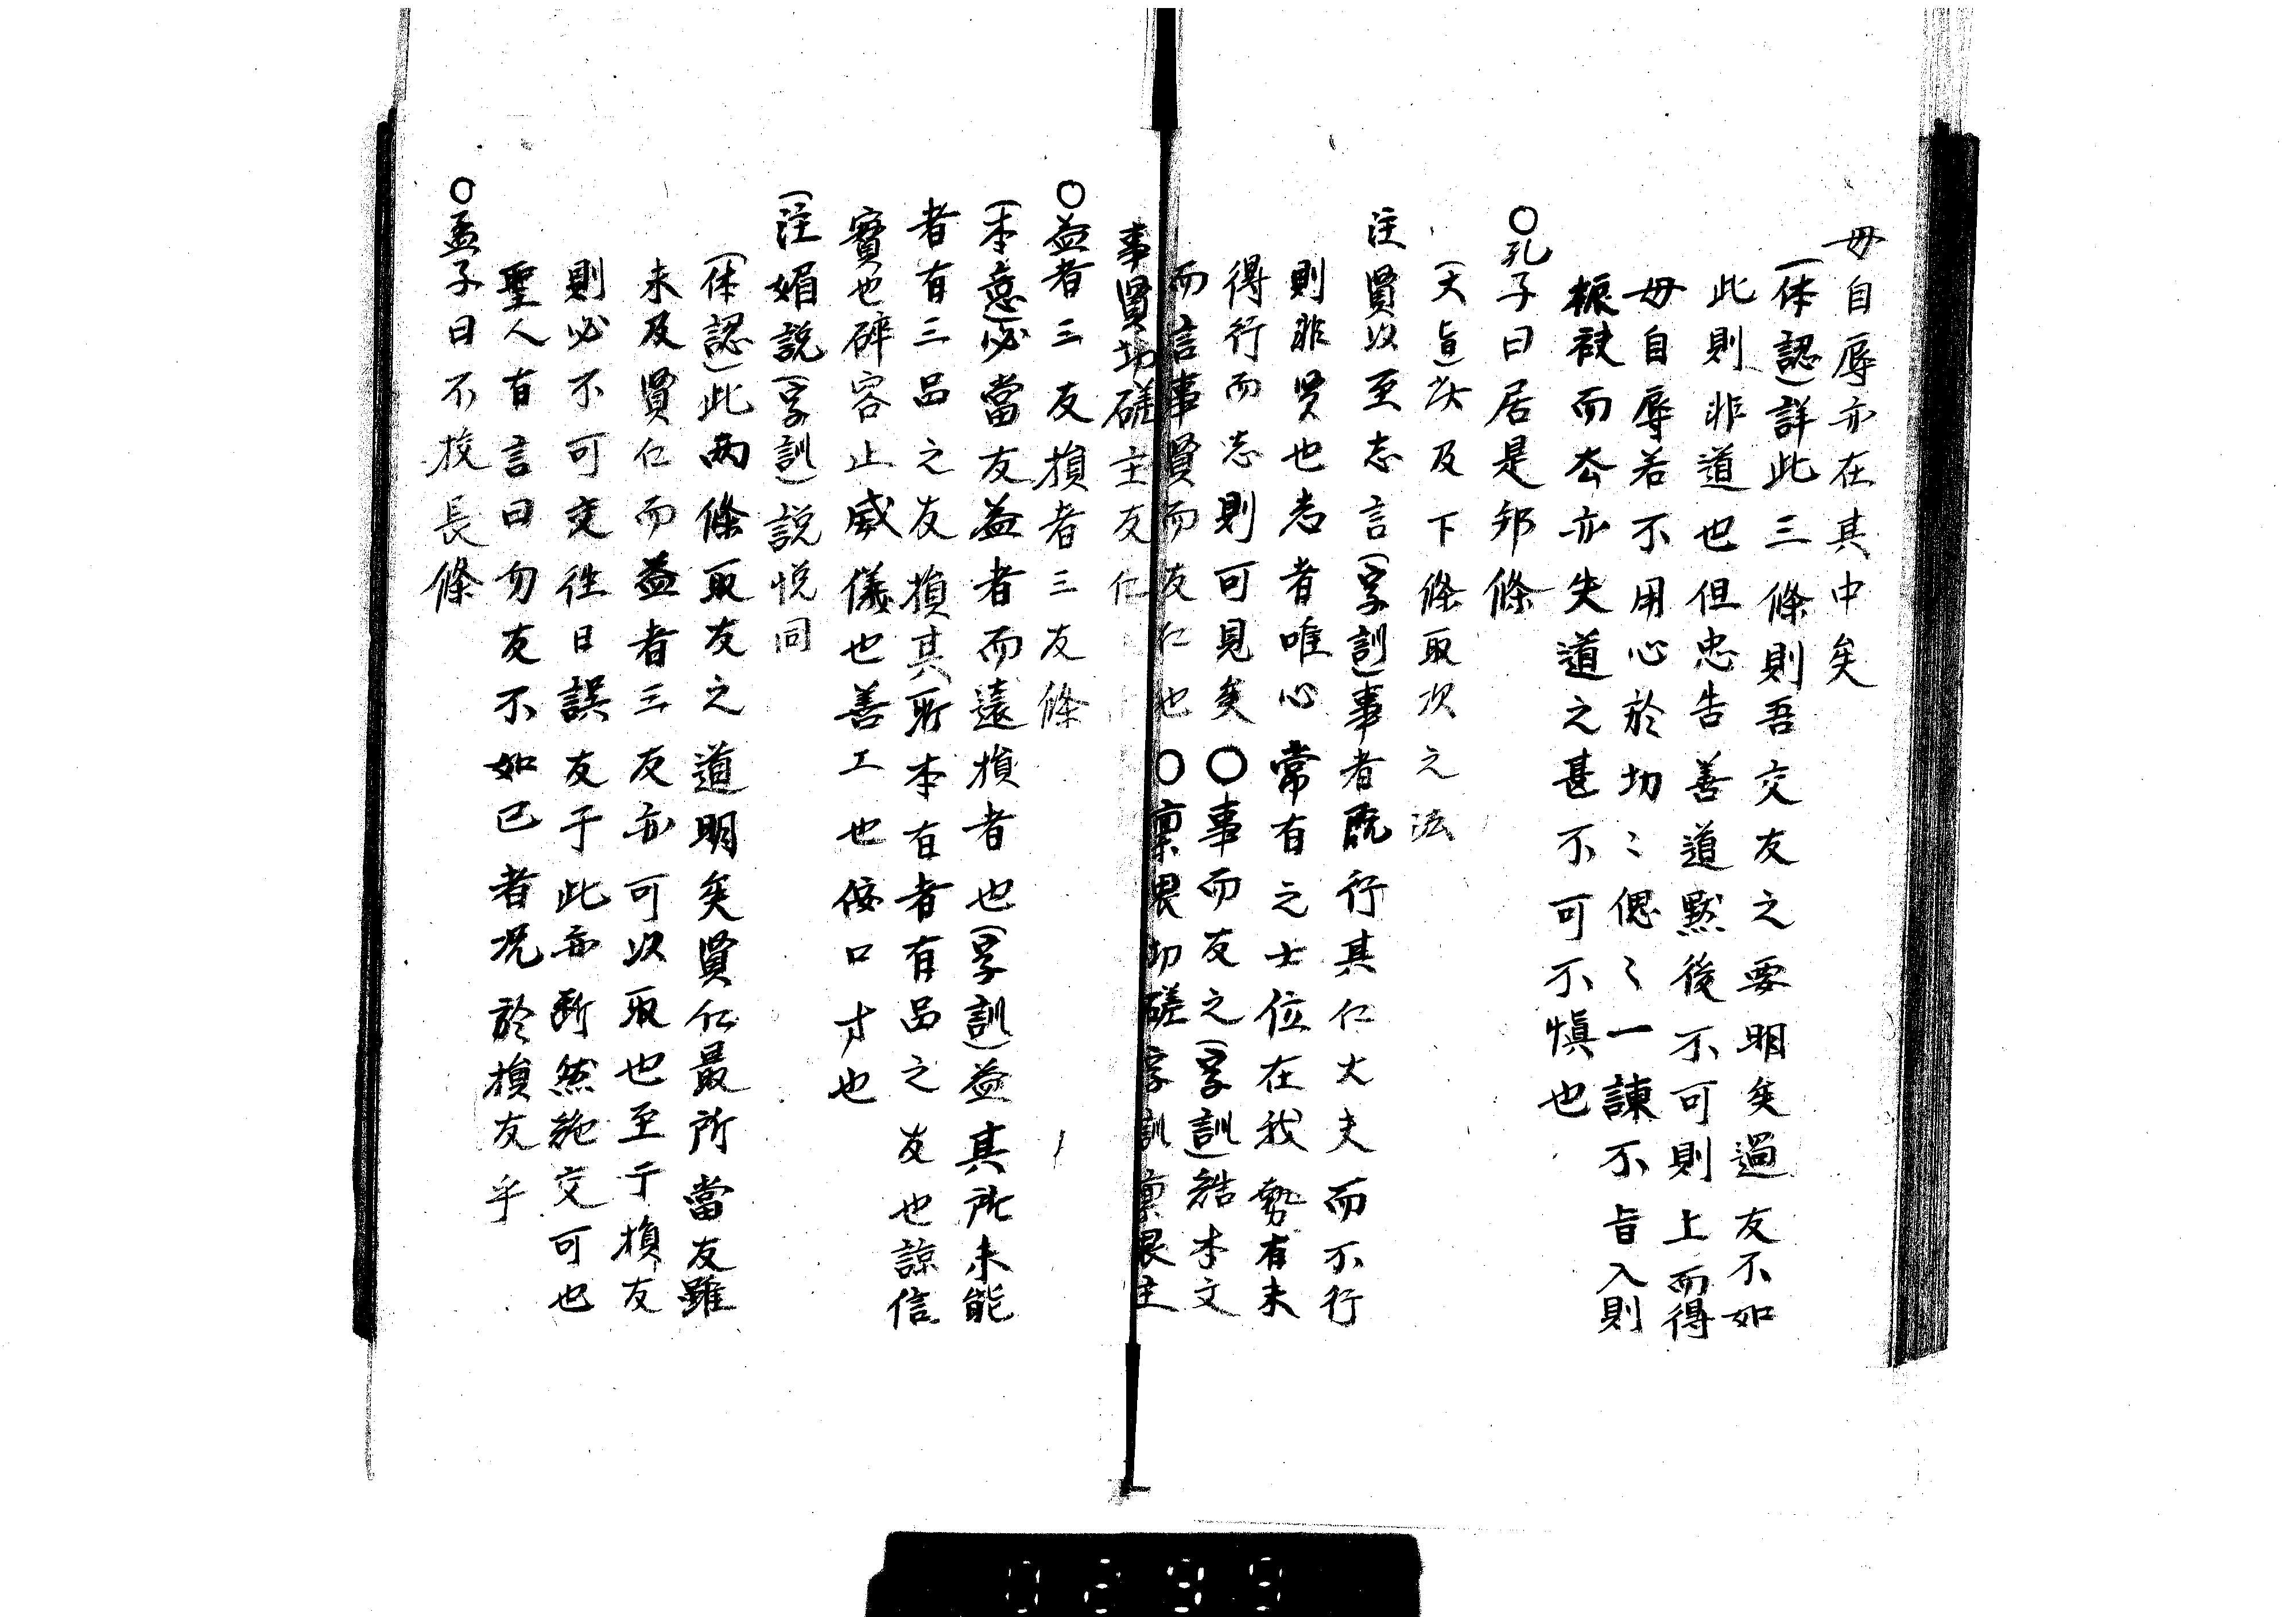 毋自辱亦在其中矣
(体認)詳此三條則吾交友之要明矣過友不如
此則非道也但忠告善道黙後不可則上而得
毋自辱若不用心於切〻偲〻一諫不旨入則
振袂而去亦失道之甚不可不慎也
○孔子曰居是邦條
(大旨)次及下條取次之法
注賢以至志言(字訓)事者既行其仁大夫而不行
則非贤也志者唯心常有之士位在我勢有未
得行而志則可見矣○事而友之(字訓)結本文
而言事賢而友仁也○稟畏切磋字訓稟畏主
事賢切磋主友仁
○益者三友損者三友條
(本意)必當友益者而遠損者也(字訓)益其所未能
者有三品之友損其所本有者有品之友也諒信
實也辟容止威儀也善工也佞口才也
(注媚説(字訓)説悦同
(体認)此两條取友之道明矣賢仁最所當友雖
未及賢仁而益者三友亦可以取也至于損友
則必不可交徃日誤友于此亦断然絶交可也
聖人有言曰勿友不如己者况於損友乎
○孟子曰不挍長條